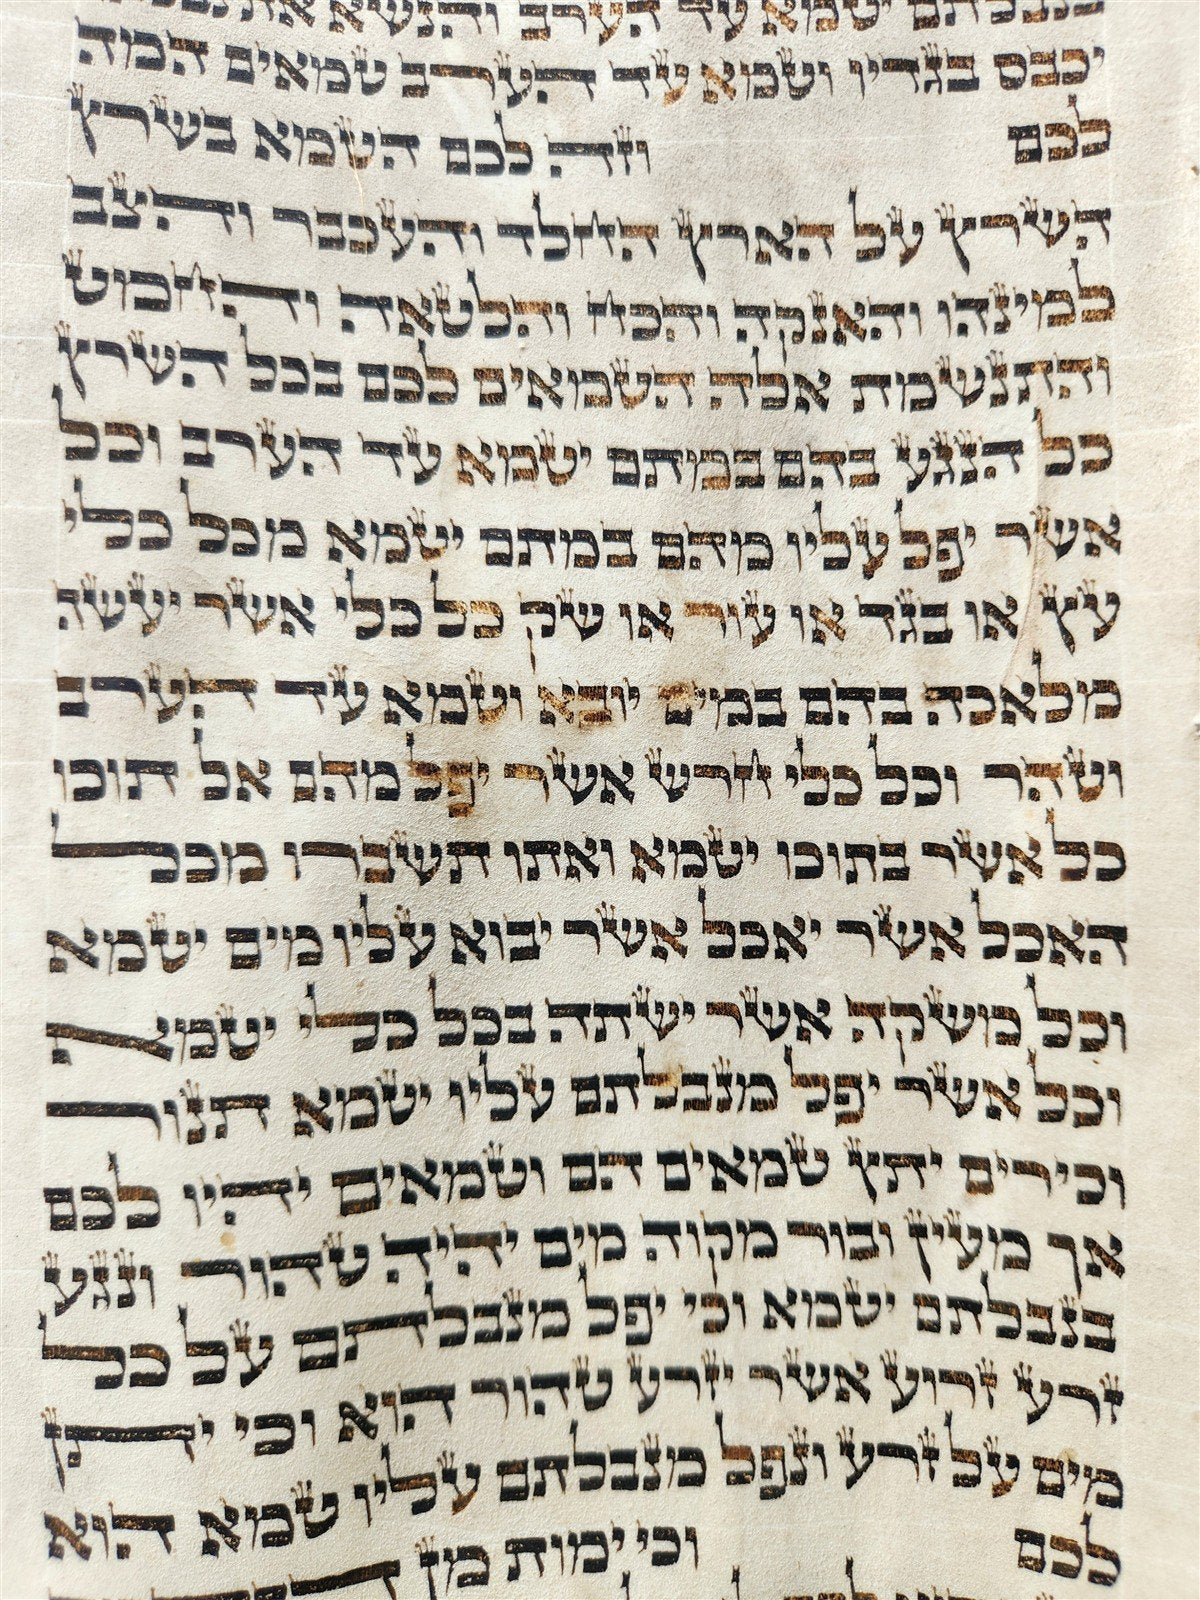 בנבלתם יטמא עד הערב והנשא את
יכבס בגדיו וטמא עד הערב טמאים המה
לכם וזה לכם הטמא בשרץ
השרץ על הארץ החלד והעכבר והצב
למינהו והאנקה והכח והלטאה והחמט
והתנשמת אלה הטמאים לכם בכל השרץ
כל הנגע בהם במתם יטמא עד הערב וכל
אשר יפל עליו מהם במתם יטמא מכל כלי
עץ או בגד או עור או שק כל כלי אשר יעשה
מלאכה בהם במים יובא וטמא עד הערב
וטהר וכל כלי חרש אשר יפל מהם אל תוכו
כל אשר בתוכו יטמא ואתו תשברו מכל
האכל אשר יאכל אשר יבוא עליו מים יטמא
וכל משקה אשר ישתה בכל כלי יטמא
וכל אשר יפל מנבלתם עליו יטמא תנור
וכירים יתץ טמאים הם וטמאים יהיו לכם
אך מעין ובור מקוה מים יהיה טהור ונגע
בנבלתם יטמא וכי יפל מנבלתם על כל
זרע זרוע אשר יזרע טהור הוא וכי יתן
מים על זרע ונפל מנבלתם עליו טמא הוא
לכם וכי ימות מן